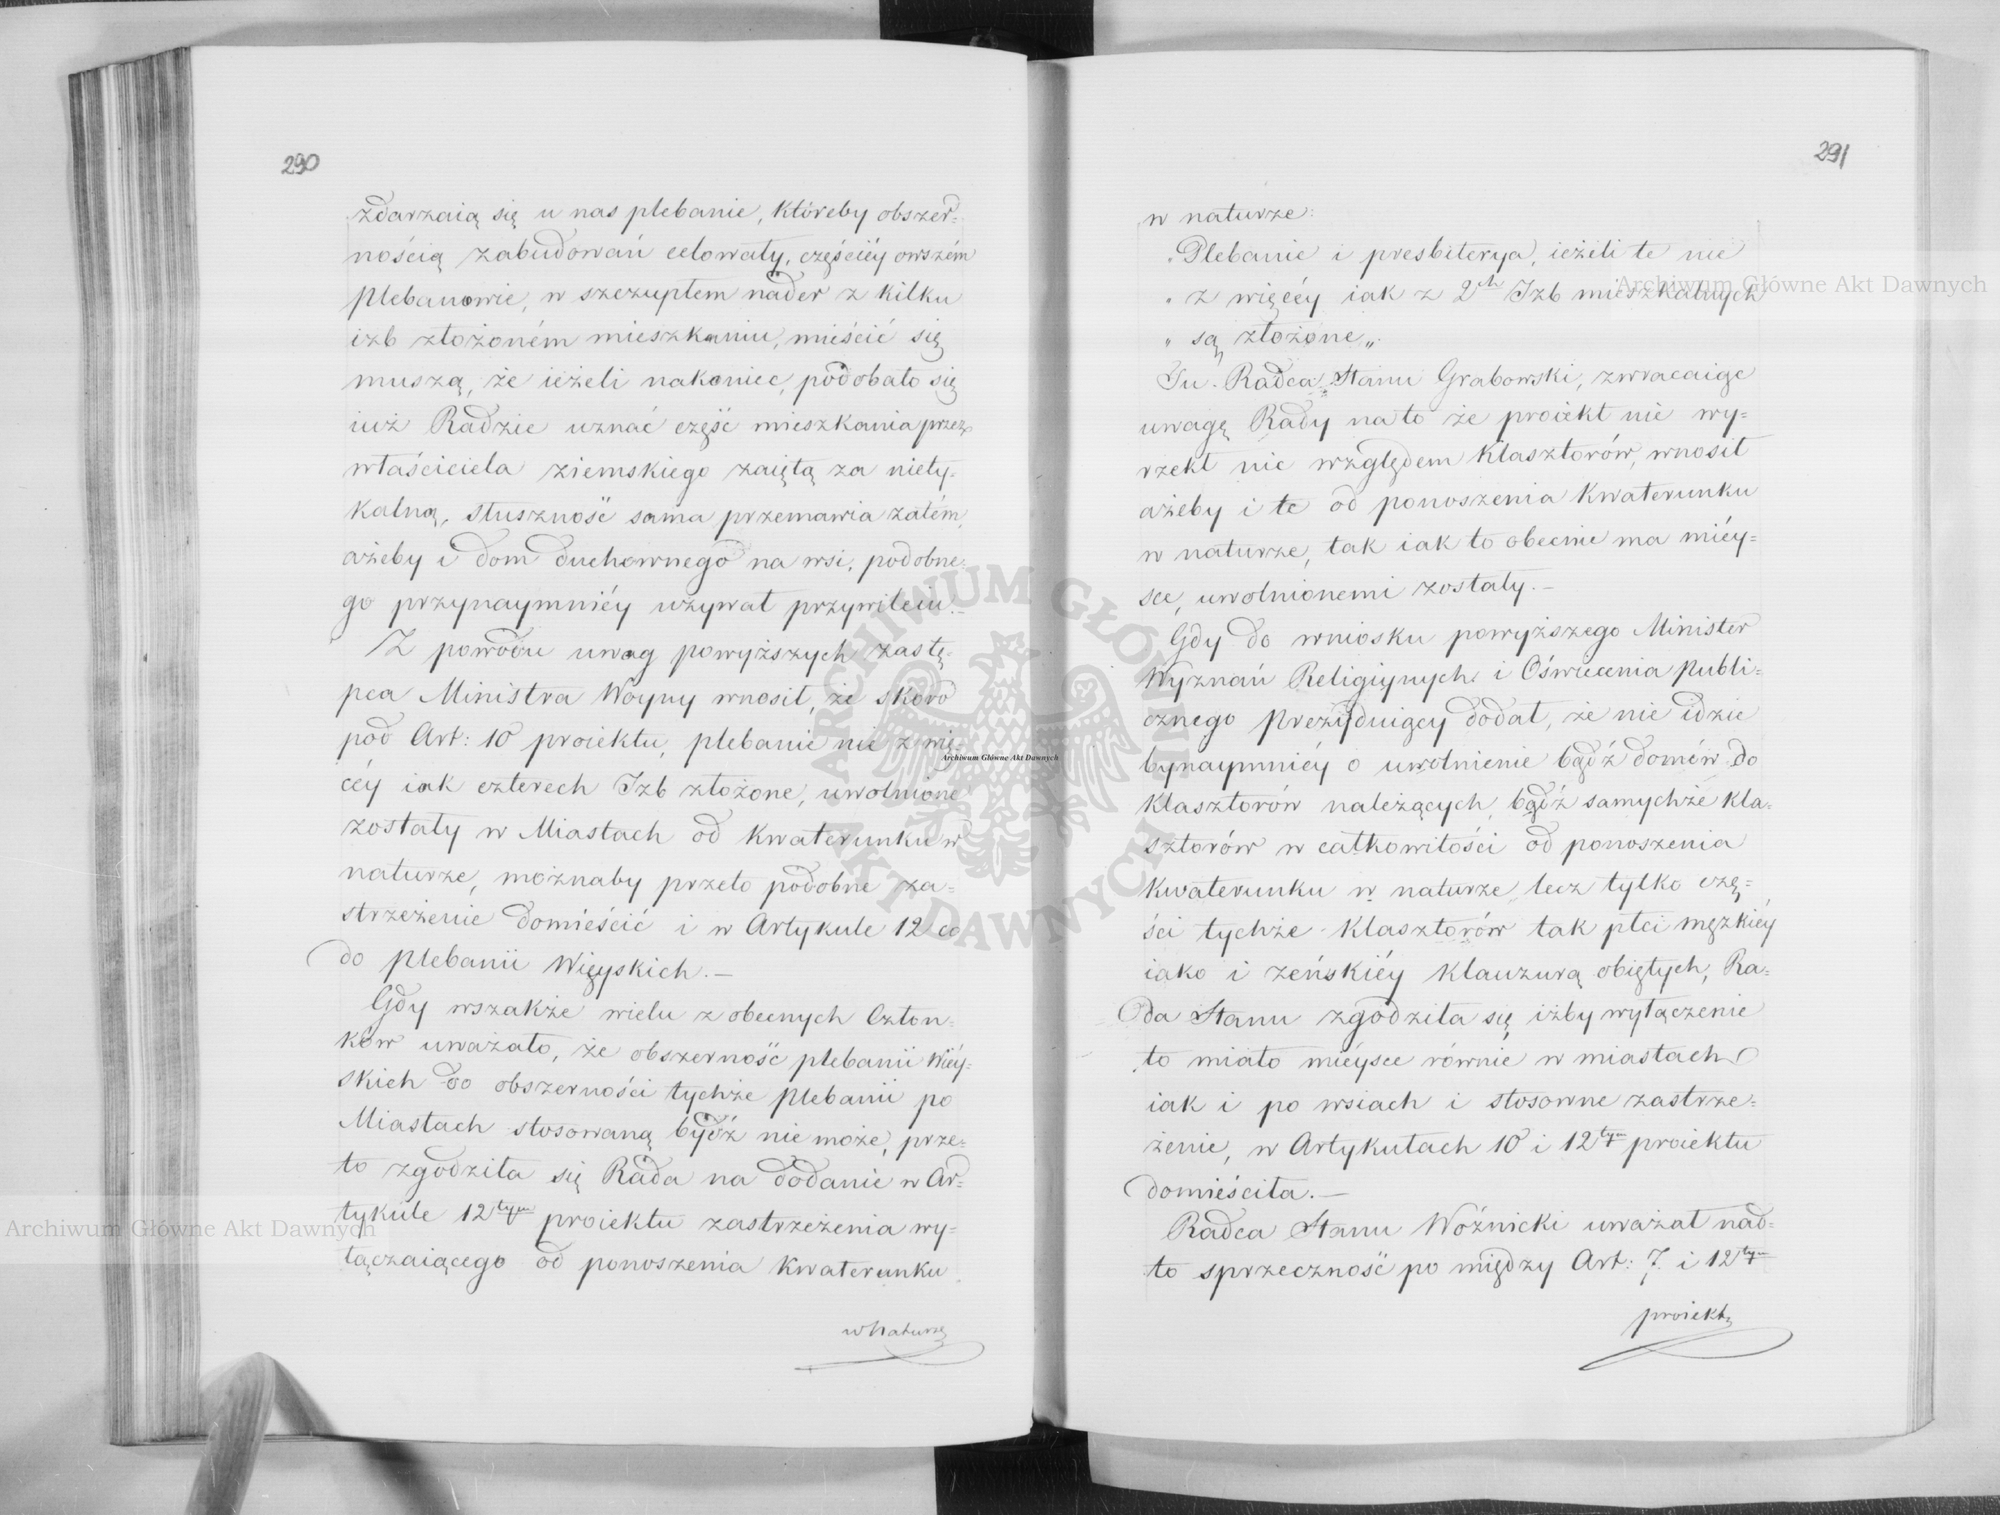 290
zdarzaią się u nas plebanie, któreby obszer=
nością zabudowań celowały, częściéy owszém
plebanowie, w szczupłem nader z kilku
izb złożoném mieszkaniu, mieścić się
muszą, że ieżeli nakoniec, podobało się
iuż Radzie uznać część mieszkania przez
właściciela ziemskiego zaiętą za niety=
kalną, słuszność sama przemawia zatém,
ażeby i dom duchownego na wsi, podobne=
go przynaymniéy używał przywileiu.–
Z powodu uwag powyższych zastę=
pca Ministra Woyny wnosił, że skoro
pod Art: 10 proiektu, plebanie nie z wię=
céy iak czterech Izb złożone, uwolnione
zostały w Miastach od kwaterunku w
naturze, możnaby przeto podobne za=
strzeżenie domieścić i w Artykule 12 co
do plebanii Wieyskich.–
Gdy wszakże wielu z obecnych Człon=
ków uważało, że obszerność plebanii Wiéy=
skich do obszerności tychże plebanii po
Miastach stosowaną bydź nie może, prze=
to zgodziła się Rada na dodanie w Ar=
tykule 12tym proiektu zastrzeżenia wy=
łączaiącego od ponoszenia kwaterunku
w Naturze
291
w naturze:
„Plebanie i presbiterya, ieżeli te nie
„ z więcéy iak z 2ch Izb mieszkalnych
„ są złożone„.
Ju. Radca Stanu Grabowski, zwracaiąc
uwagę Rady na to że proiekt nie wy=
rzekł nic względem Klasztorów, wnosił
ażeby i te od ponoszenia Kwaterunku
w naturze, tak iak to obecnie ma miéy=
sce, uwolnionemi zostały.–
Gdy do wniosku powyższego Minister
Wyznań Religiynych i Oświecenia Publi=
cznego Prezyduiący dodał, że nie idzie
bynaymniéy o uwolnienie bądź domów do
Klasztorów należących, bądź samychże Kla=
sztorów w całkowitości od ponoszenia
Kwaterunku w naturze lecz tylko czę=
ści tychże Klasztorów tak płci męzkiéy
iako i żeńskiéy klauzurą obiętych, Ra=
da Stanu zgodziła się iżby wyłączenie
to miało mieysce równie w miastach
iak i po wsiach i stosowne zastrze=
żenie, w Artykułach 10 i 12tym proiektu
domieściła.–
Radca Stanu Woźnicki uważał nad=
to sprzeczność po między Art: 7. i 12tym
proiektu
Archiwum Główne Akt Dawnych
Archiwum Główne Akt Dawnych
Archiwum Główne Akt Dawnych
ARCHIWUM GŁÓWNE AKT DAWNYCH